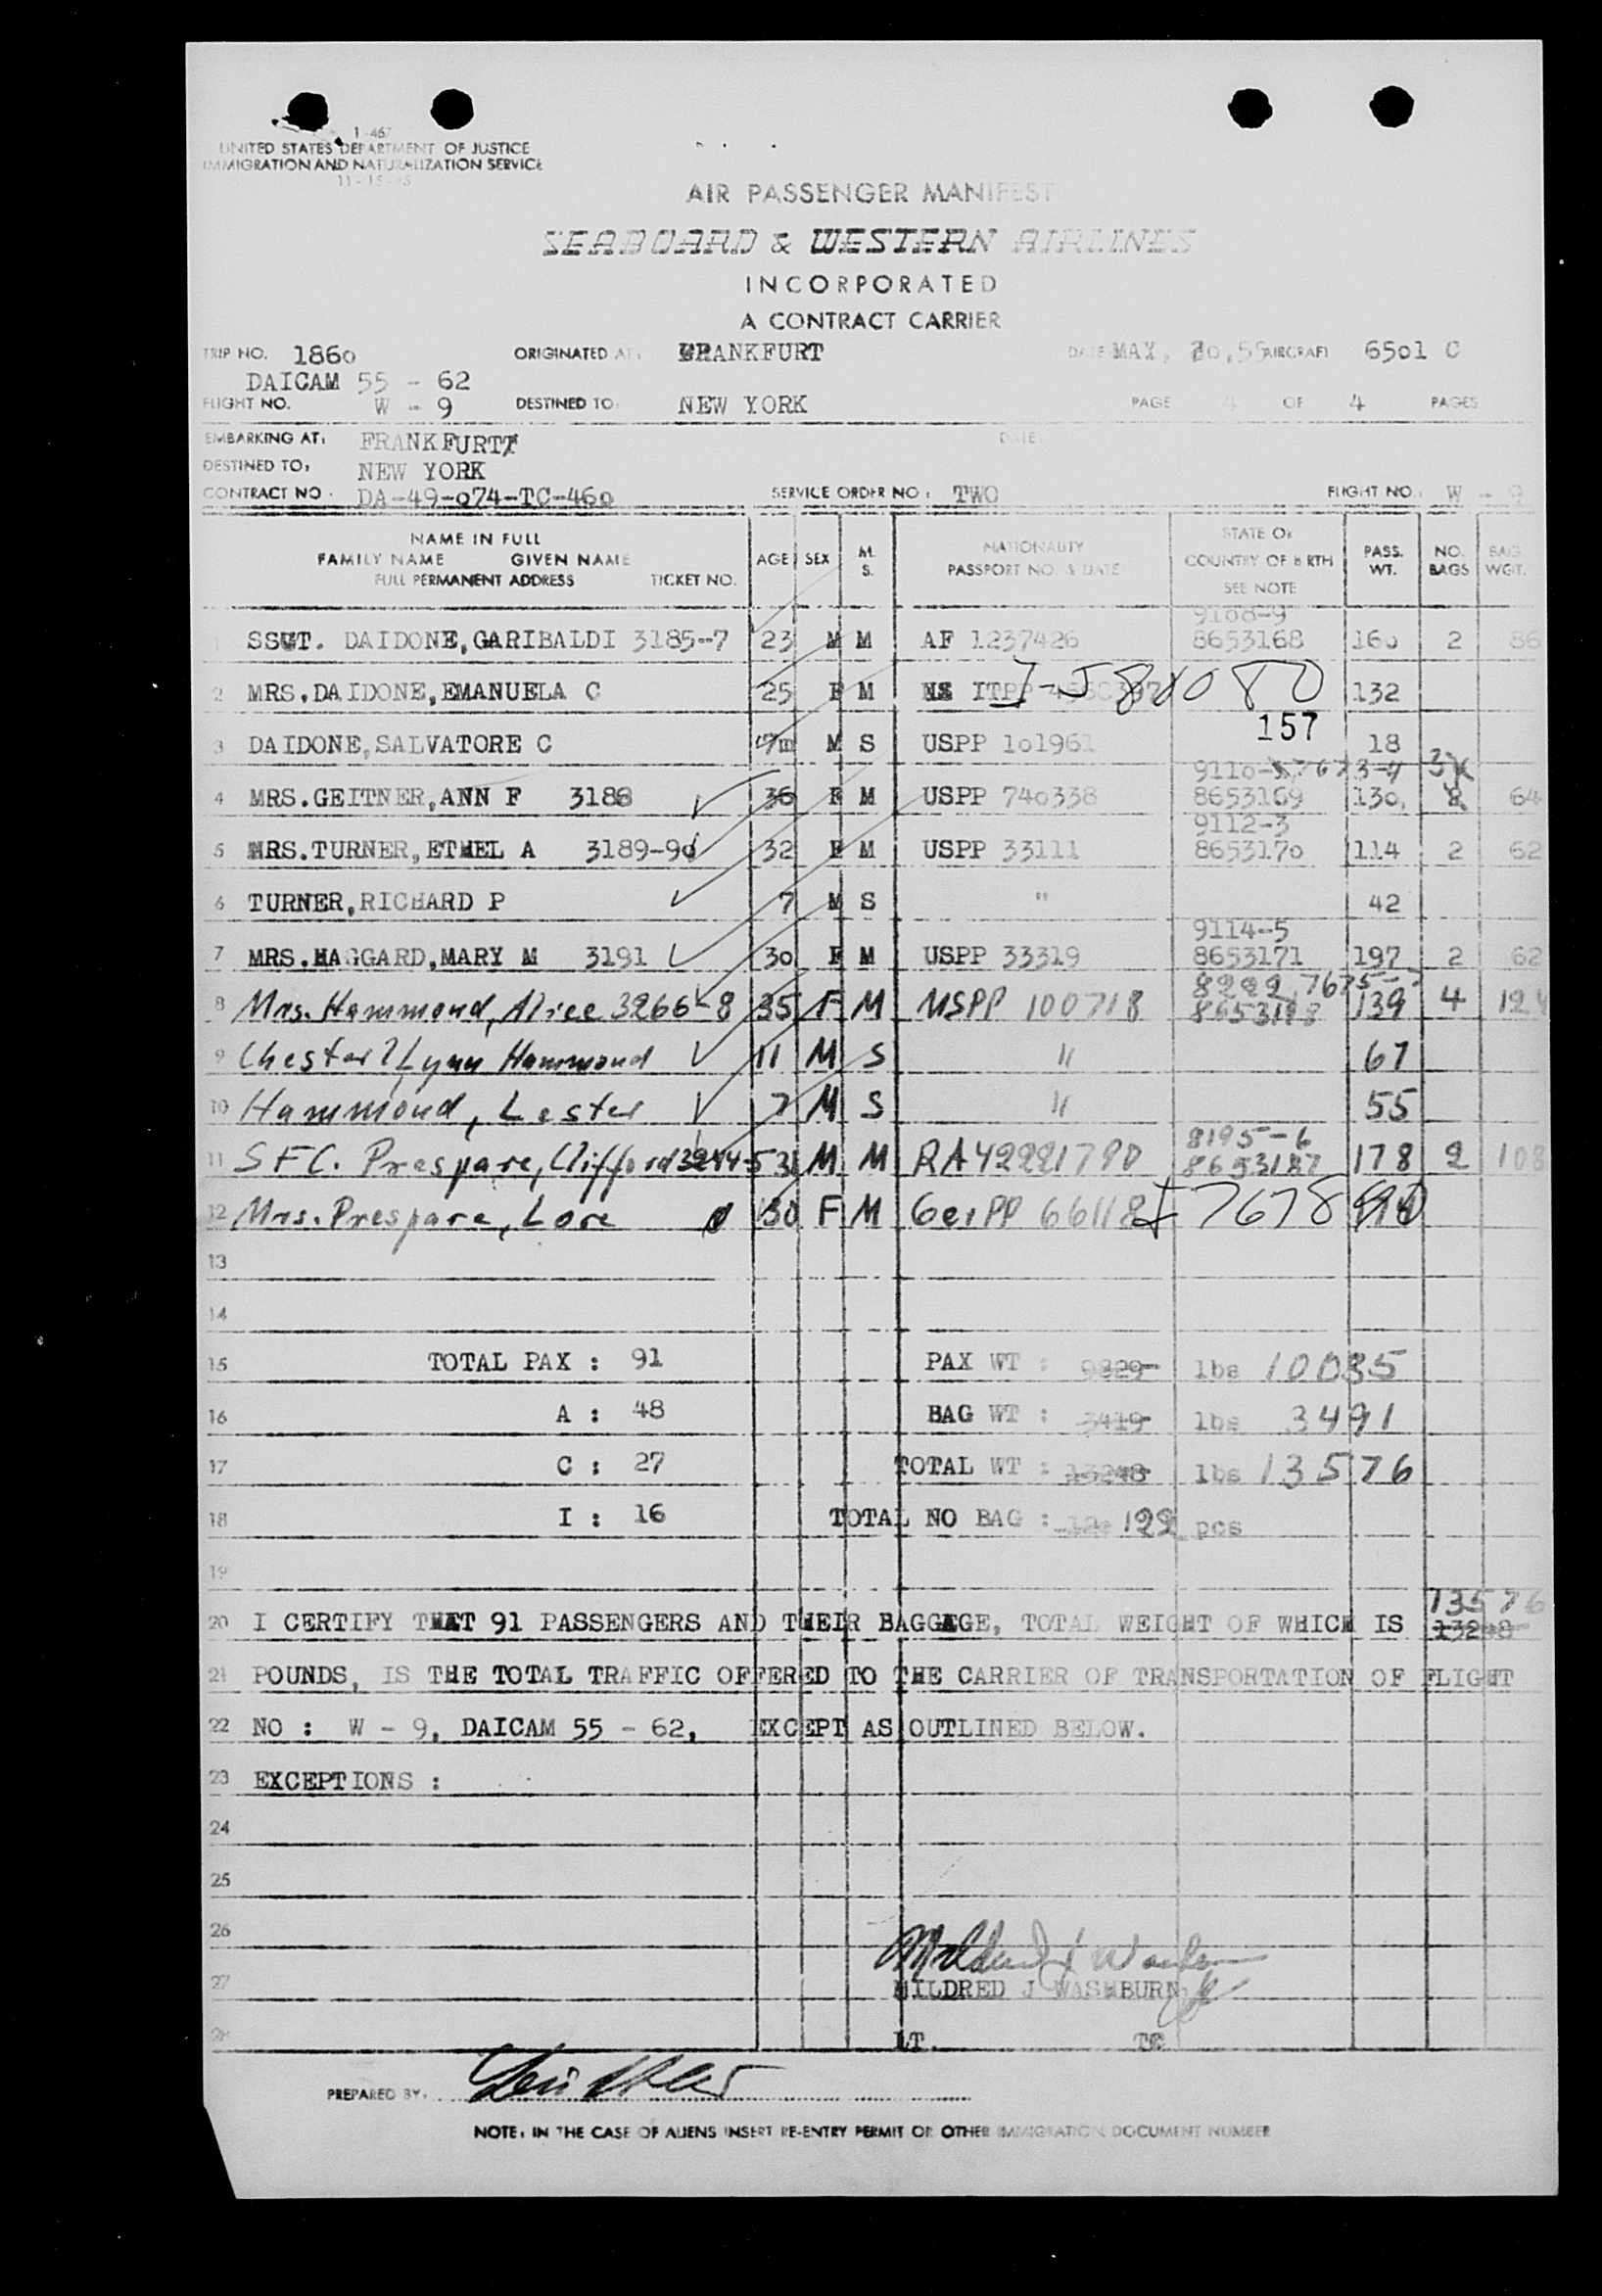 1-467
UNITED STATES DEPARTMENT OF JUSTICE
IMMIGRATION AND NATURALIZATION SERVICE
AIR PASSENGER MANIFEST
SEABOARD & WESTERN AIRLINES
INCORPORATED
A CONTRACT CARRIER
TRIP NO. 186o ORIGINATED AT: FRANKFURT DATE MAY, 20,55 AIRCRAFT 65o1 C
DAICAM 55 - 62
FLIGHT NO. W - 9 DESTINED TO: NEW YORK PAGE 4 OF 4 PAGES
EMBARKING AT: FRANKFURT DATE:
DESTINED TO: NEW YORK
CONTRACT NO. DA-49-o74-TC-46o SERVICE ORDER NO: TWO FLIGHT NO. W - 9
NAME IN FULL
FAMILY NAME GIVEN NAME
FULL PERMANENT ADDRESS TICKET NO.
AGE SEX M. S.
NATIONALITY
PASSPORT NO. & DATE
STATE OR
COUNTRY OF BIRTH
SEE NOTE
PASS. WT. NO. BAGS BAG. WGT.
9108-9
1 SSGT. DAIDONE,GARIBALDI 3185-7 23 M M AF 1237426 8653168 16o 2 86
2 MRS.DAIDONE,EMANUELA C 25 F M ITPP 132
157
3 DAIDONE,SALVATORE C 7m M S USPP 1o1961 18
911o-
4 MRS.GEITNER,ANN F 3188 36 F M USPP 74o338 8653169 13o 64
9112-3
5 MRS.TURNER,ETHEL A 3189-9o 32 F M USPP 33111 865317o 114 2 62
6 TURNER,RICHARD P 7 M S " 42
9114-5
7 MRS.HAGGARD,MARY M 3191 3o F M USPP 33319 8653171 197 2 62
8 Mrs. Hammond, Alice 3266-8 35 F M USPP 100718 139 4 124
9 Chester Lynn Hammond 11 M S " 67
10 Hammond, Lester 7 M S " 55
8195-6
11 SFC. Prespare, Clifford 3244-5 31 M M RA42221790 8653187 178 2 108
12 Mrs. Prespare, Lore 30 F M Ger PP 66118
13
14
15 TOTAL PAX : 91 PAX WT : 9829 lbs 10085
16 A : 48 BAG WT : 3419 lbs 3491
17 C : 27 TOTAL WT : 13248 lbs 13576
18 I : 16 TOTAL NO BAG : 122 pcs
19
13576
20 I CERTIFY THAT 91 PASSENGERS AND THEIR BAGGAGE, TOTAL WEIGHT OF WHICH IS 13248
21 POUNDS, IS THE TOTAL TRAFFIC OFFERED TO THE CARRIER OF TRANSPORTATION OF FLIGHT
22 NO : W - 9, DAICAM 55 - 62, EXCEPT AS OUTLINED BELOW.
23 EXCEPTIONS :
24
25
26
27 MILDRED J WASHBURN
28 LT. TC
PREPARED BY:
NOTE: IN THE CASE OF ALIENS INSERT RE-ENTRY PERMIT OR OTHER IMMIGRATION DOCUMENT NUMBER